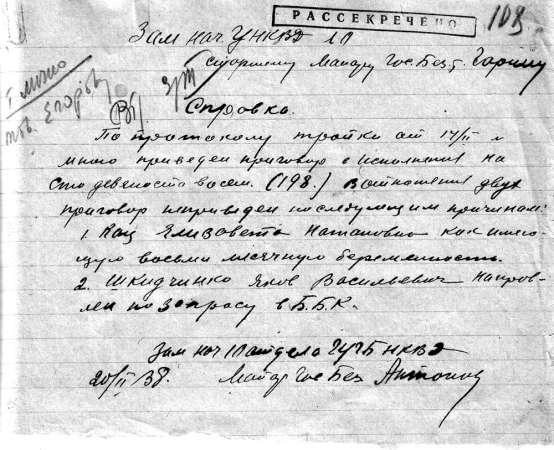 РАССЕКРЕЧЕНО
109
Зам нач УНКВД ЛО
старшему Майору Гос. Без. т. Гарину
т. Егорову
Справка.
По протоколу тройки от 14/II
мною приведен приговор в исполнения на
сто девеноста восем. (198.) В отношения двух
приговор неприведен последующим причинам:
1. Кац Елизавета Натановна как имею-
щую восьми месячную беременность.
2. Шкидчинко Яков Васильевич направ-
лен по запросу в Б.Б.К.
Зам нач 10 отдела ГУГБ НКВД
20/II 38. Майор Гос Без